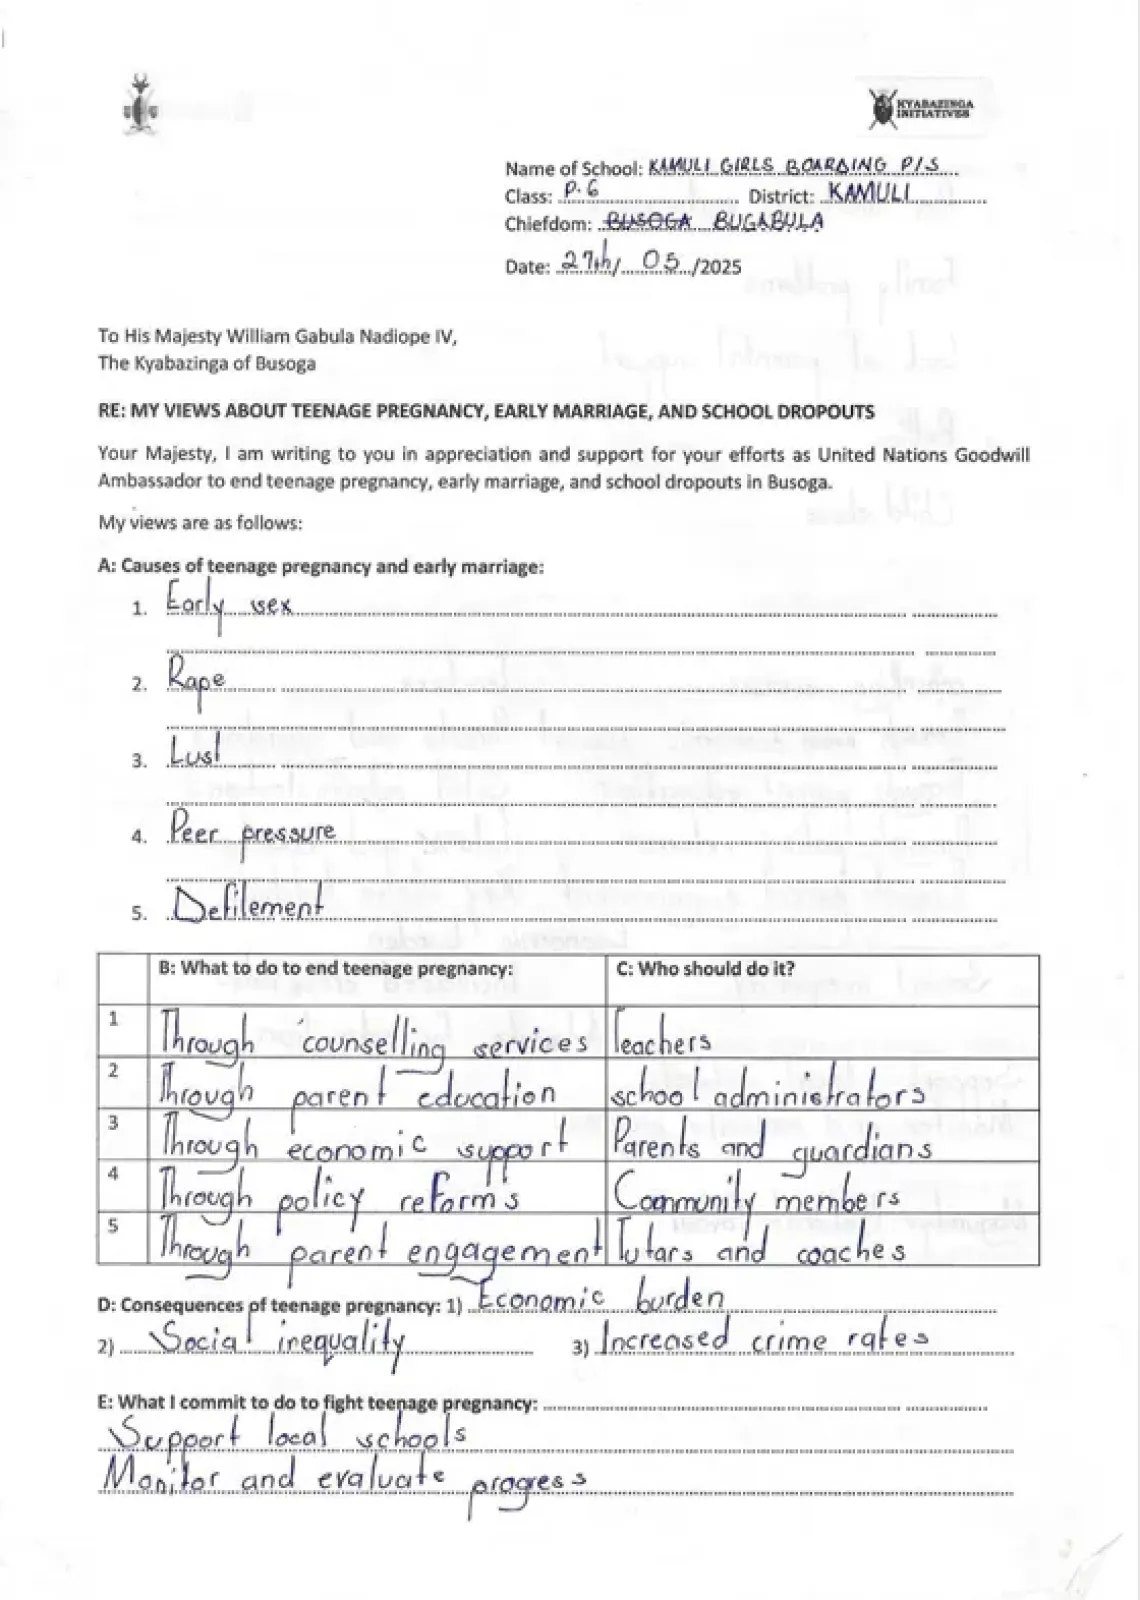 KYABAZINGA
INITIATIVES
Name of School: KAMULI GIRLS BOARDING P/S
Class: P.6 District: KAMULI
Chiefdom: BUSOGA BUGABULA
Date: 27th/ 05 /2025
To His Majesty William Gabula Nadiope IV,
The Kyabazinga of Busoga
RE: MY VIEWS ABOUT TEENAGE PREGNANCY, EARLY MARRIAGE, AND SCHOOL DROPOUTS
Your Majesty, I am writing to you in appreciation and support for your efforts as United Nations Goodwill
Ambassador to end teenage pregnancy, early marriage, and school dropouts in Busoga.
My views are as follows:
A: Causes of teenage pregnancy and early marriage:
1. Early sex
2. Rape
3. Lust
4. Peer pressure
5. Defilement
B: What to do to end teenage pregnancy: C: Who should do it?
1 Through counselling services Teachers
2 Through parent education school administrators
3 Through economic support Parents and guardians
4 Through policy reforms Community members
5 Through parent engagement Tutars and coaches
D: Consequences of teenage pregnancy: 1) Economic burden
2) Social inequality 3) Increased crime rates
E: What I commit to do to fight teenage pregnancy:
Support local schools
Monitor and evaluate progress